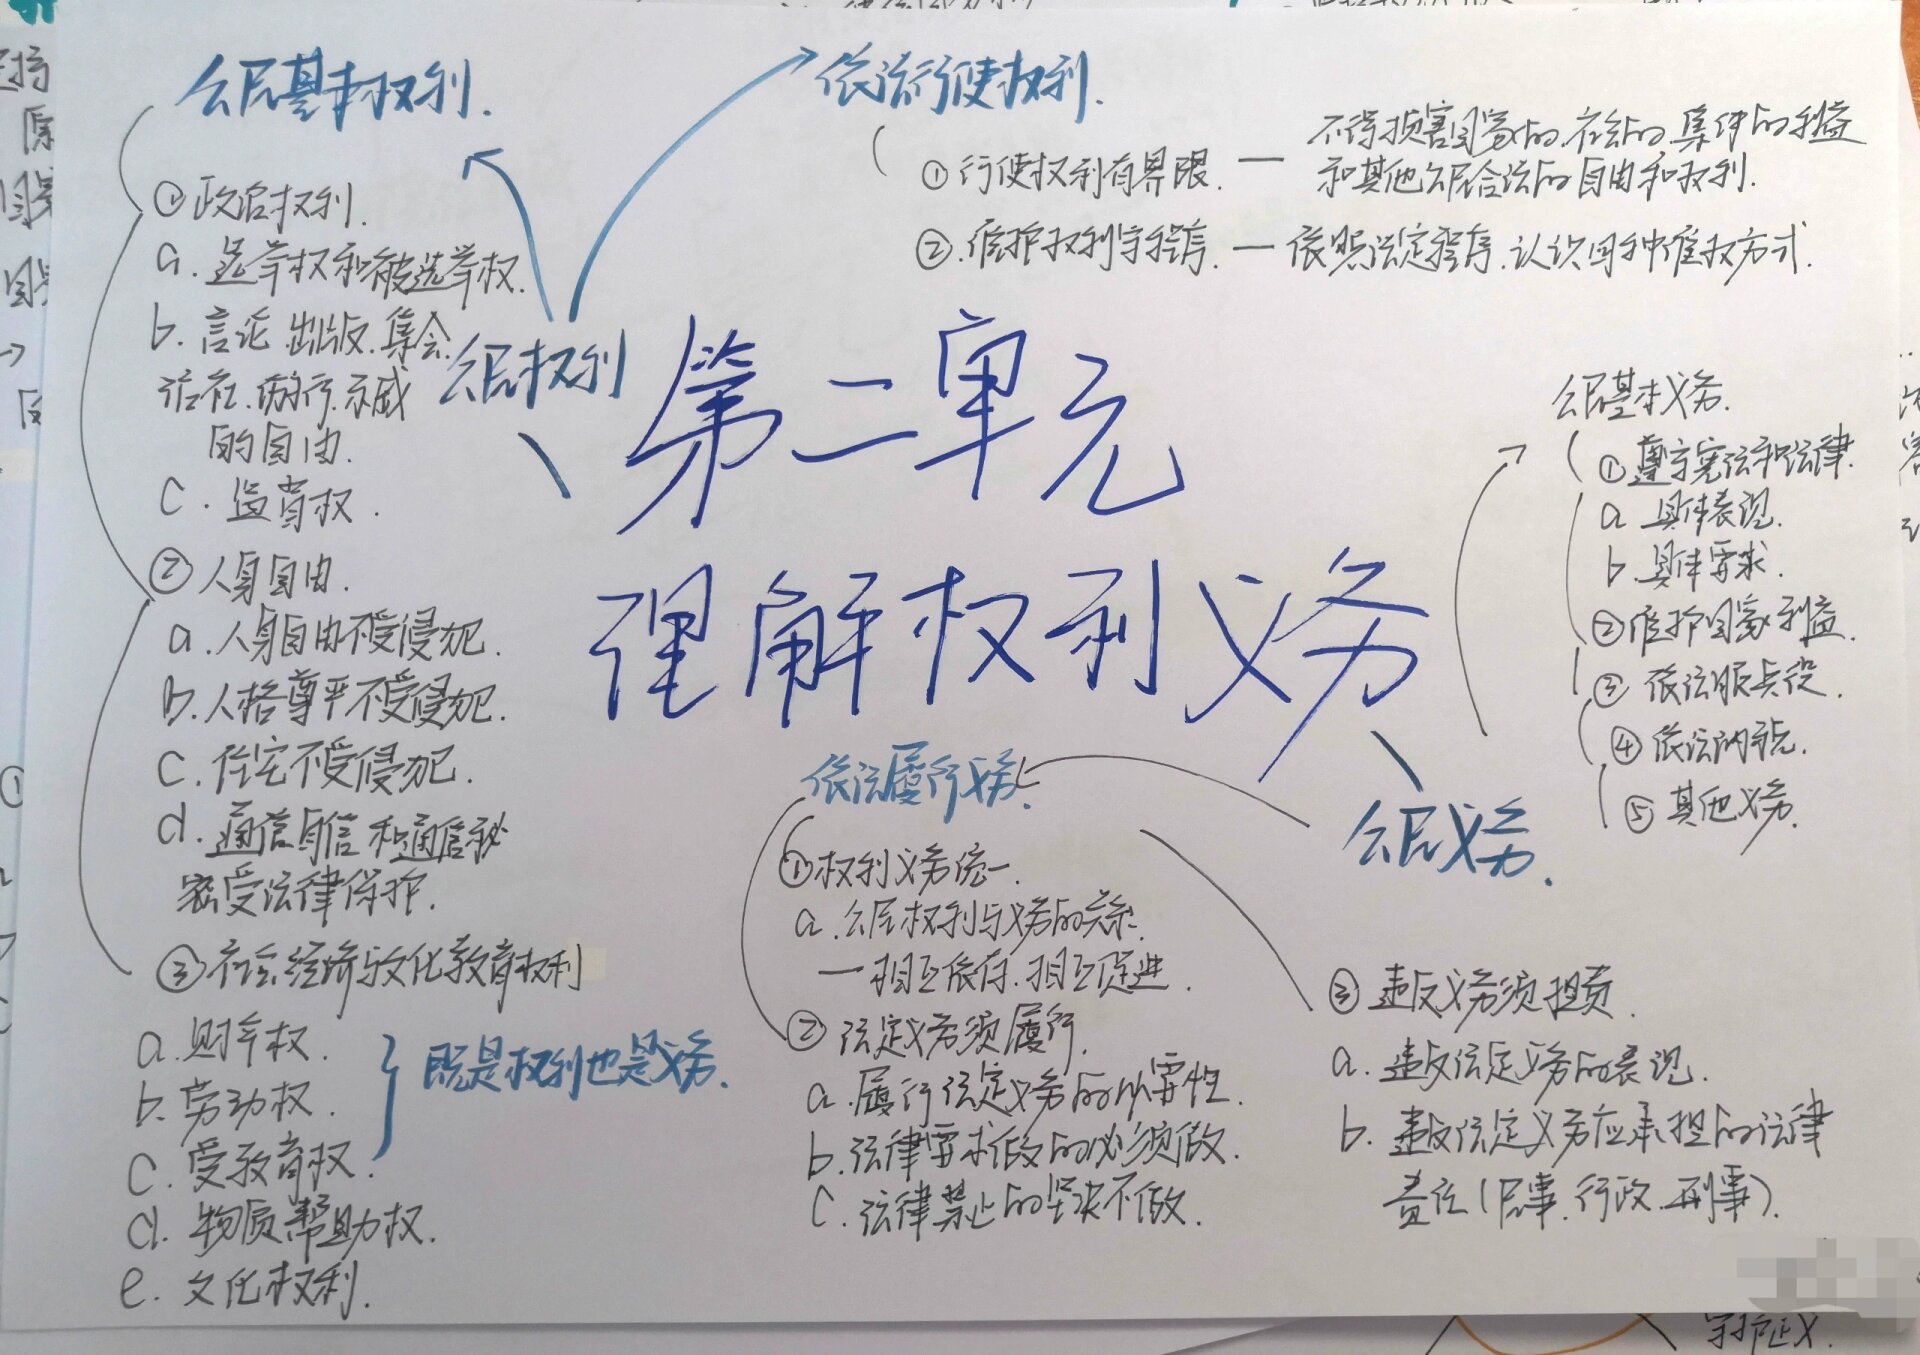 第二单元
理解权利义务
公民权利
公民基本权利.
①政治权利.
a.选举权和被选举权.
b.言论.出版.集会.
结社.游行.示威
的自由.
c.监督权.
②人身自由.
a.人身自由不受侵犯.
b.人格尊严不受侵犯.
c.住宅不受侵犯.
d.通信自信和通信秘
密受法律保护.
③社会经济与文化教育权利
a.财产权.
b.劳动权.
c.受教育权.
d.物质帮助权.
e.文化权利.
既是权利也是义务.
依法行使权利.
①行使权利有界限.—不得损害国家的.社会的.集体的利益
和其他公民合法的自由和权利.
②.维护权利守程序.—依照法定程序.认识四种维权方式.
公民义务.
公民基本义务.
①遵守宪法和法律.
a 具体表现.
b.具体要求.
②维护国家利益.
③依法服兵役.
④依法纳税.
⑤其他义务.
依法履行义务.
①权利义务统一.
a.公民权利与义务的关系.
—相互依存.相互促进.
②法定义务须履行.
a.履行法定义务的必要性.
b.法律要求做的必须做.
c.法律禁止的坚决不做.
③违反义务须担责.
a.违反法定义务的表现.
b.违反法定义务应承担的法律
责任(民事.行政.刑事).
守护正义.